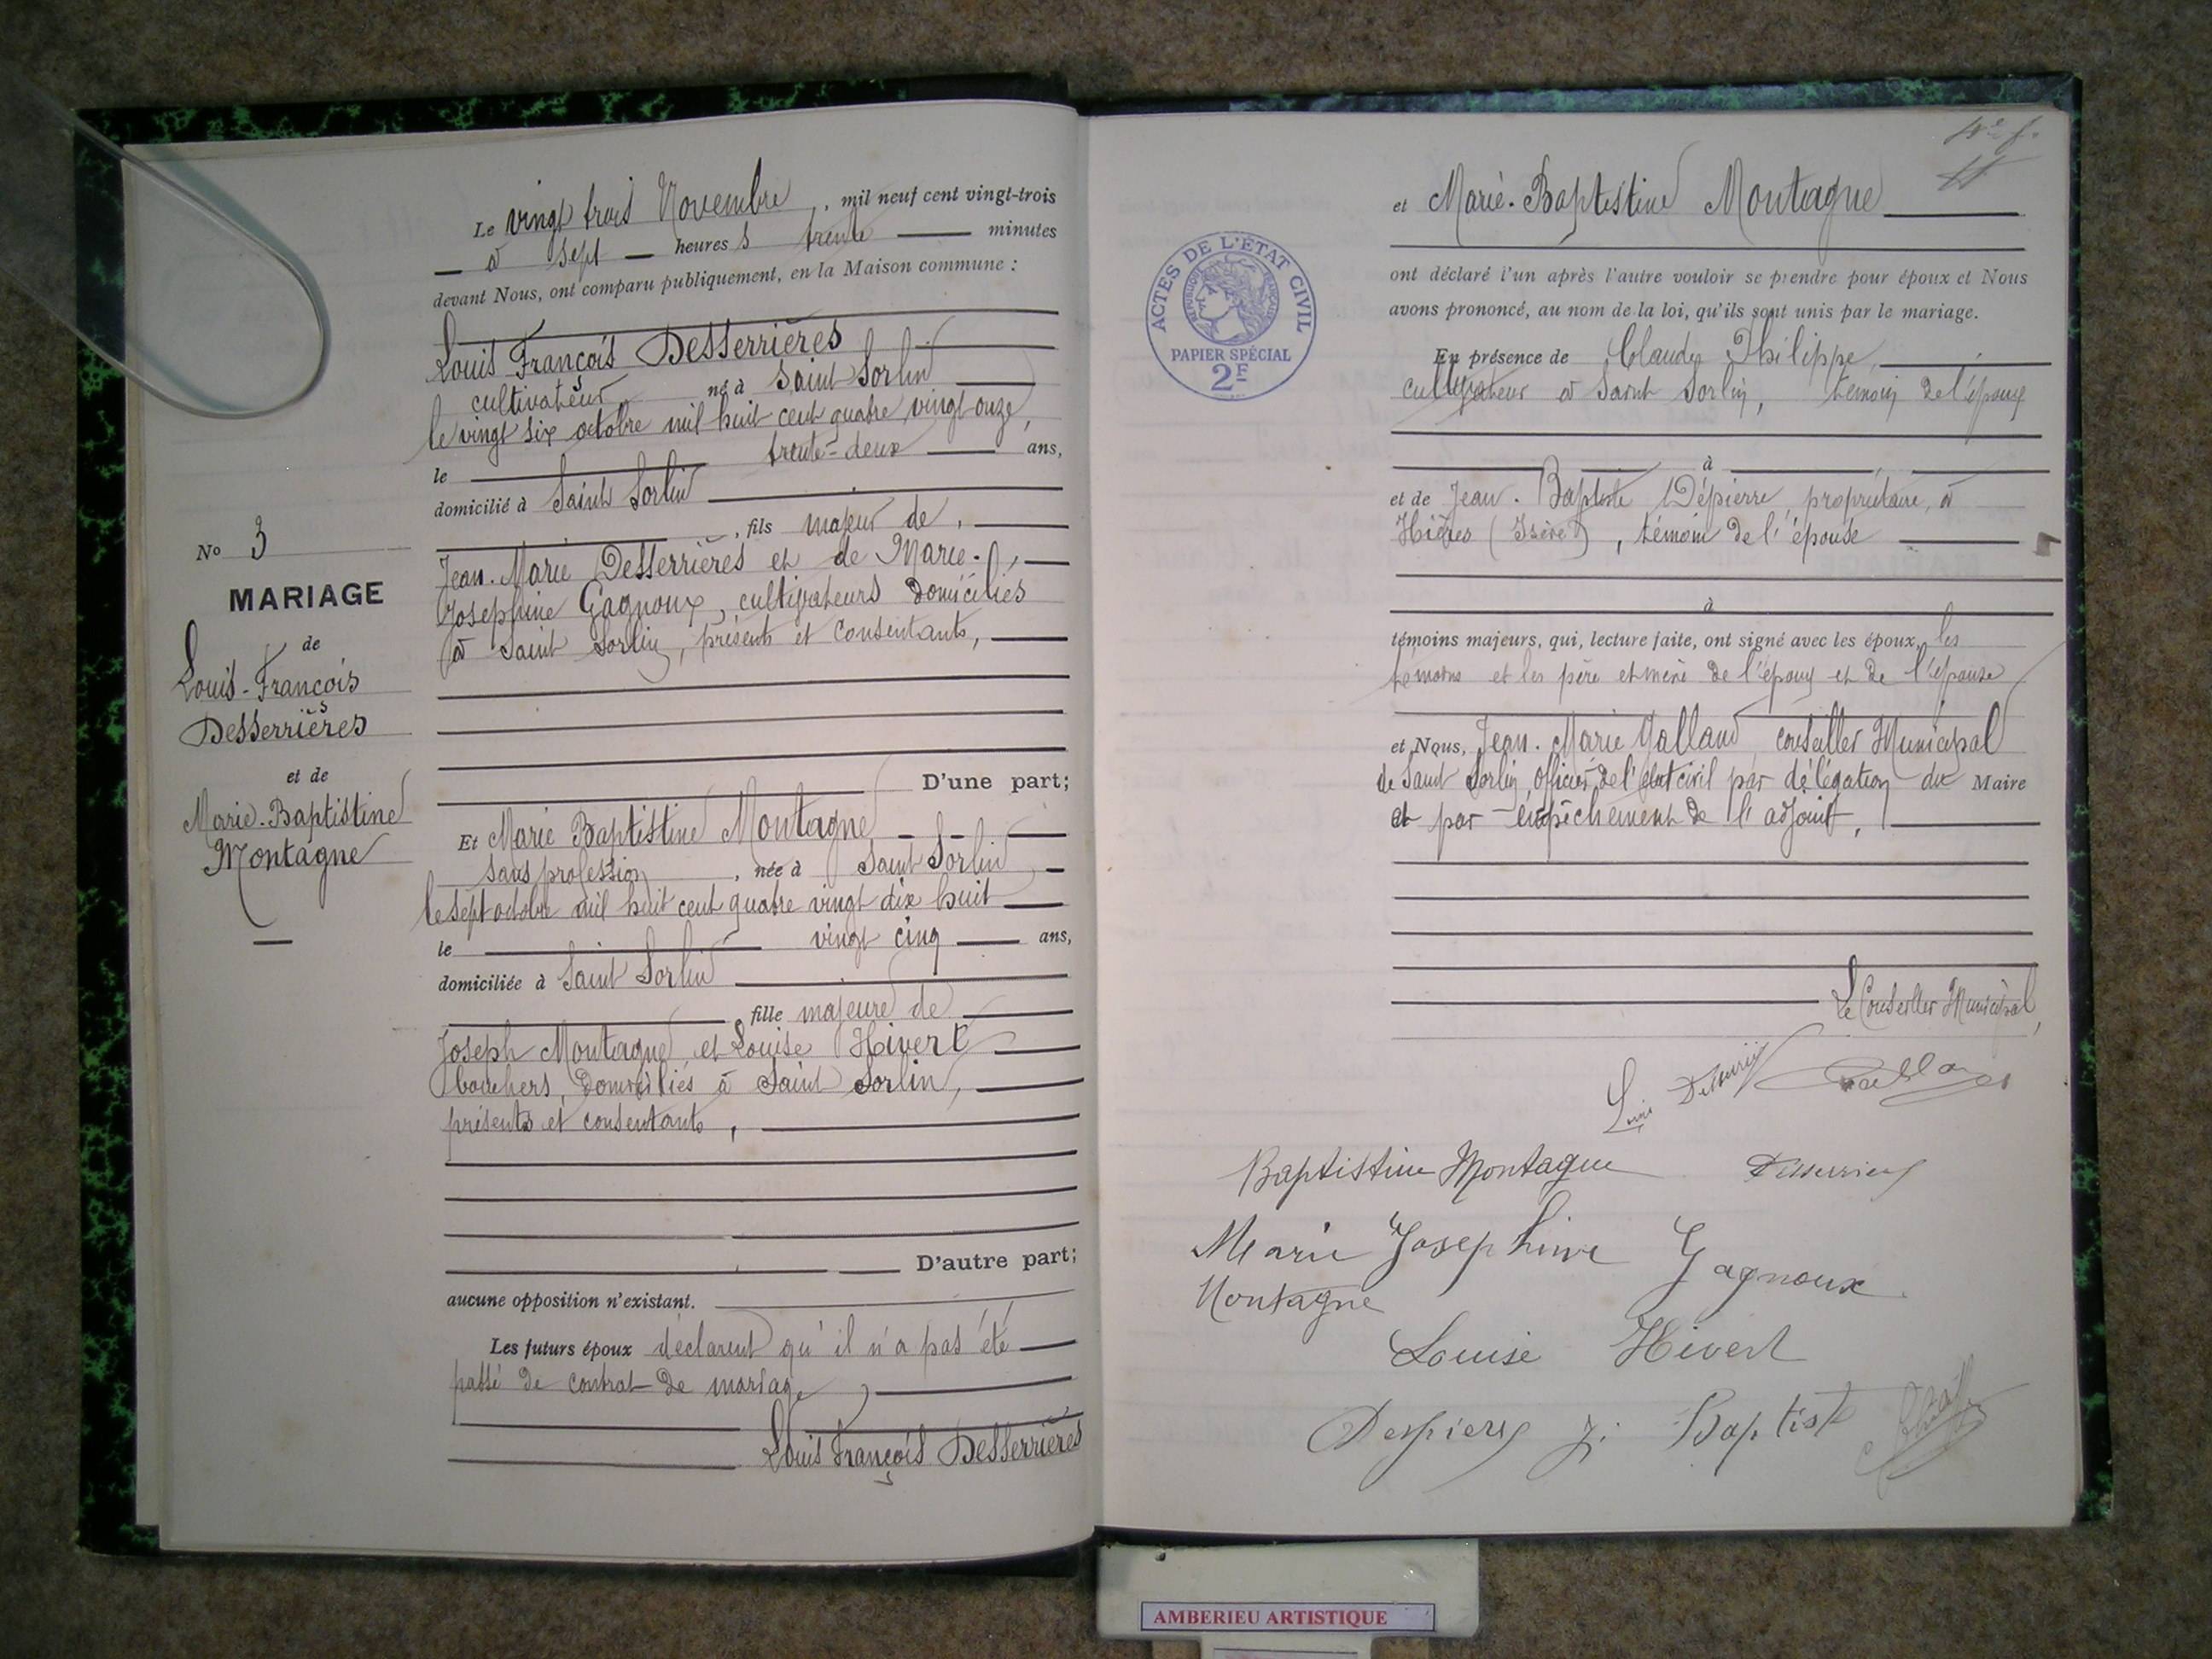 Le vingt trois Novembre, mil neuf cent vingt-trois
à sept heures trente minutes
devant Nous, ont comparu publiquement, en la Maison commune :
Louis François Desserrières
cultivateur, né à Saint Sorlin
le vingt six octobre mil huit cent quatre vingt onze,
le trente-deux ans,
domicilié à Saint Sorlin
, fils majeur de
Jean-Marie Desserrières et de Marie-
Josephine Gagnoux, cultivateurs domiciliés
à Saint Sorlin, présents et consentants,
D'une part;
Et Marie Baptistine Montagne
sans profession, née à Saint Sorlin
le sept octobre mil huit cent quatre vingt dix huit
le vingt cinq ans,
domiciliée à Saint Sorlin
, fille majeure de
Joseph Montagne et Louise Hivert
bouchers, domiciliés à Saint Sorlin,
présents et consentants,
D'autre part;
aucune opposition n'existant.
Les futurs époux déclarent qu'il n'a pas été
passé de contrat de mariage
Louis François Desserrières
No 3
MARIAGE
de
Louis-François
Desserrières
et de
Marie-Baptistine
Montagne
et Marie-Baptistine Montagne
ont déclaré l'un après l'autre vouloir se prendre pour époux et Nous
avons prononcé, au nom de la loi, qu'ils sont unis par le mariage.
En présence de Claude Philippe,
cultivateur à Saint Sorlin, témoin de l'époux
à
et de Jean-Baptiste Dépierre, propriétaire, à
Hières (Isère), témoin de l'épouse
à
témoins majeurs, qui, lecture faite, ont signé avec les époux, les
témoins et les père et mère de l'époux et de l'épouse
et Nous, Jean-Marie Galland conseiller Municipal
de Saint Sorlin, officier de l'état civil par délégation du Maire
et par empêchement de l'adjoint,
Le Conseiller Municipal,
Baptistine Montagne
Desserrieres
Marie Josephine Gagnoux
Montagne
Louise Hivert
J. Baptist
ACTES DE L'ÉTAT CIVIL
RÉPUBLIQUE FRANÇAISE
PAPIER SPÉCIAL
2F
AMBERIEU ARTISTIQUE